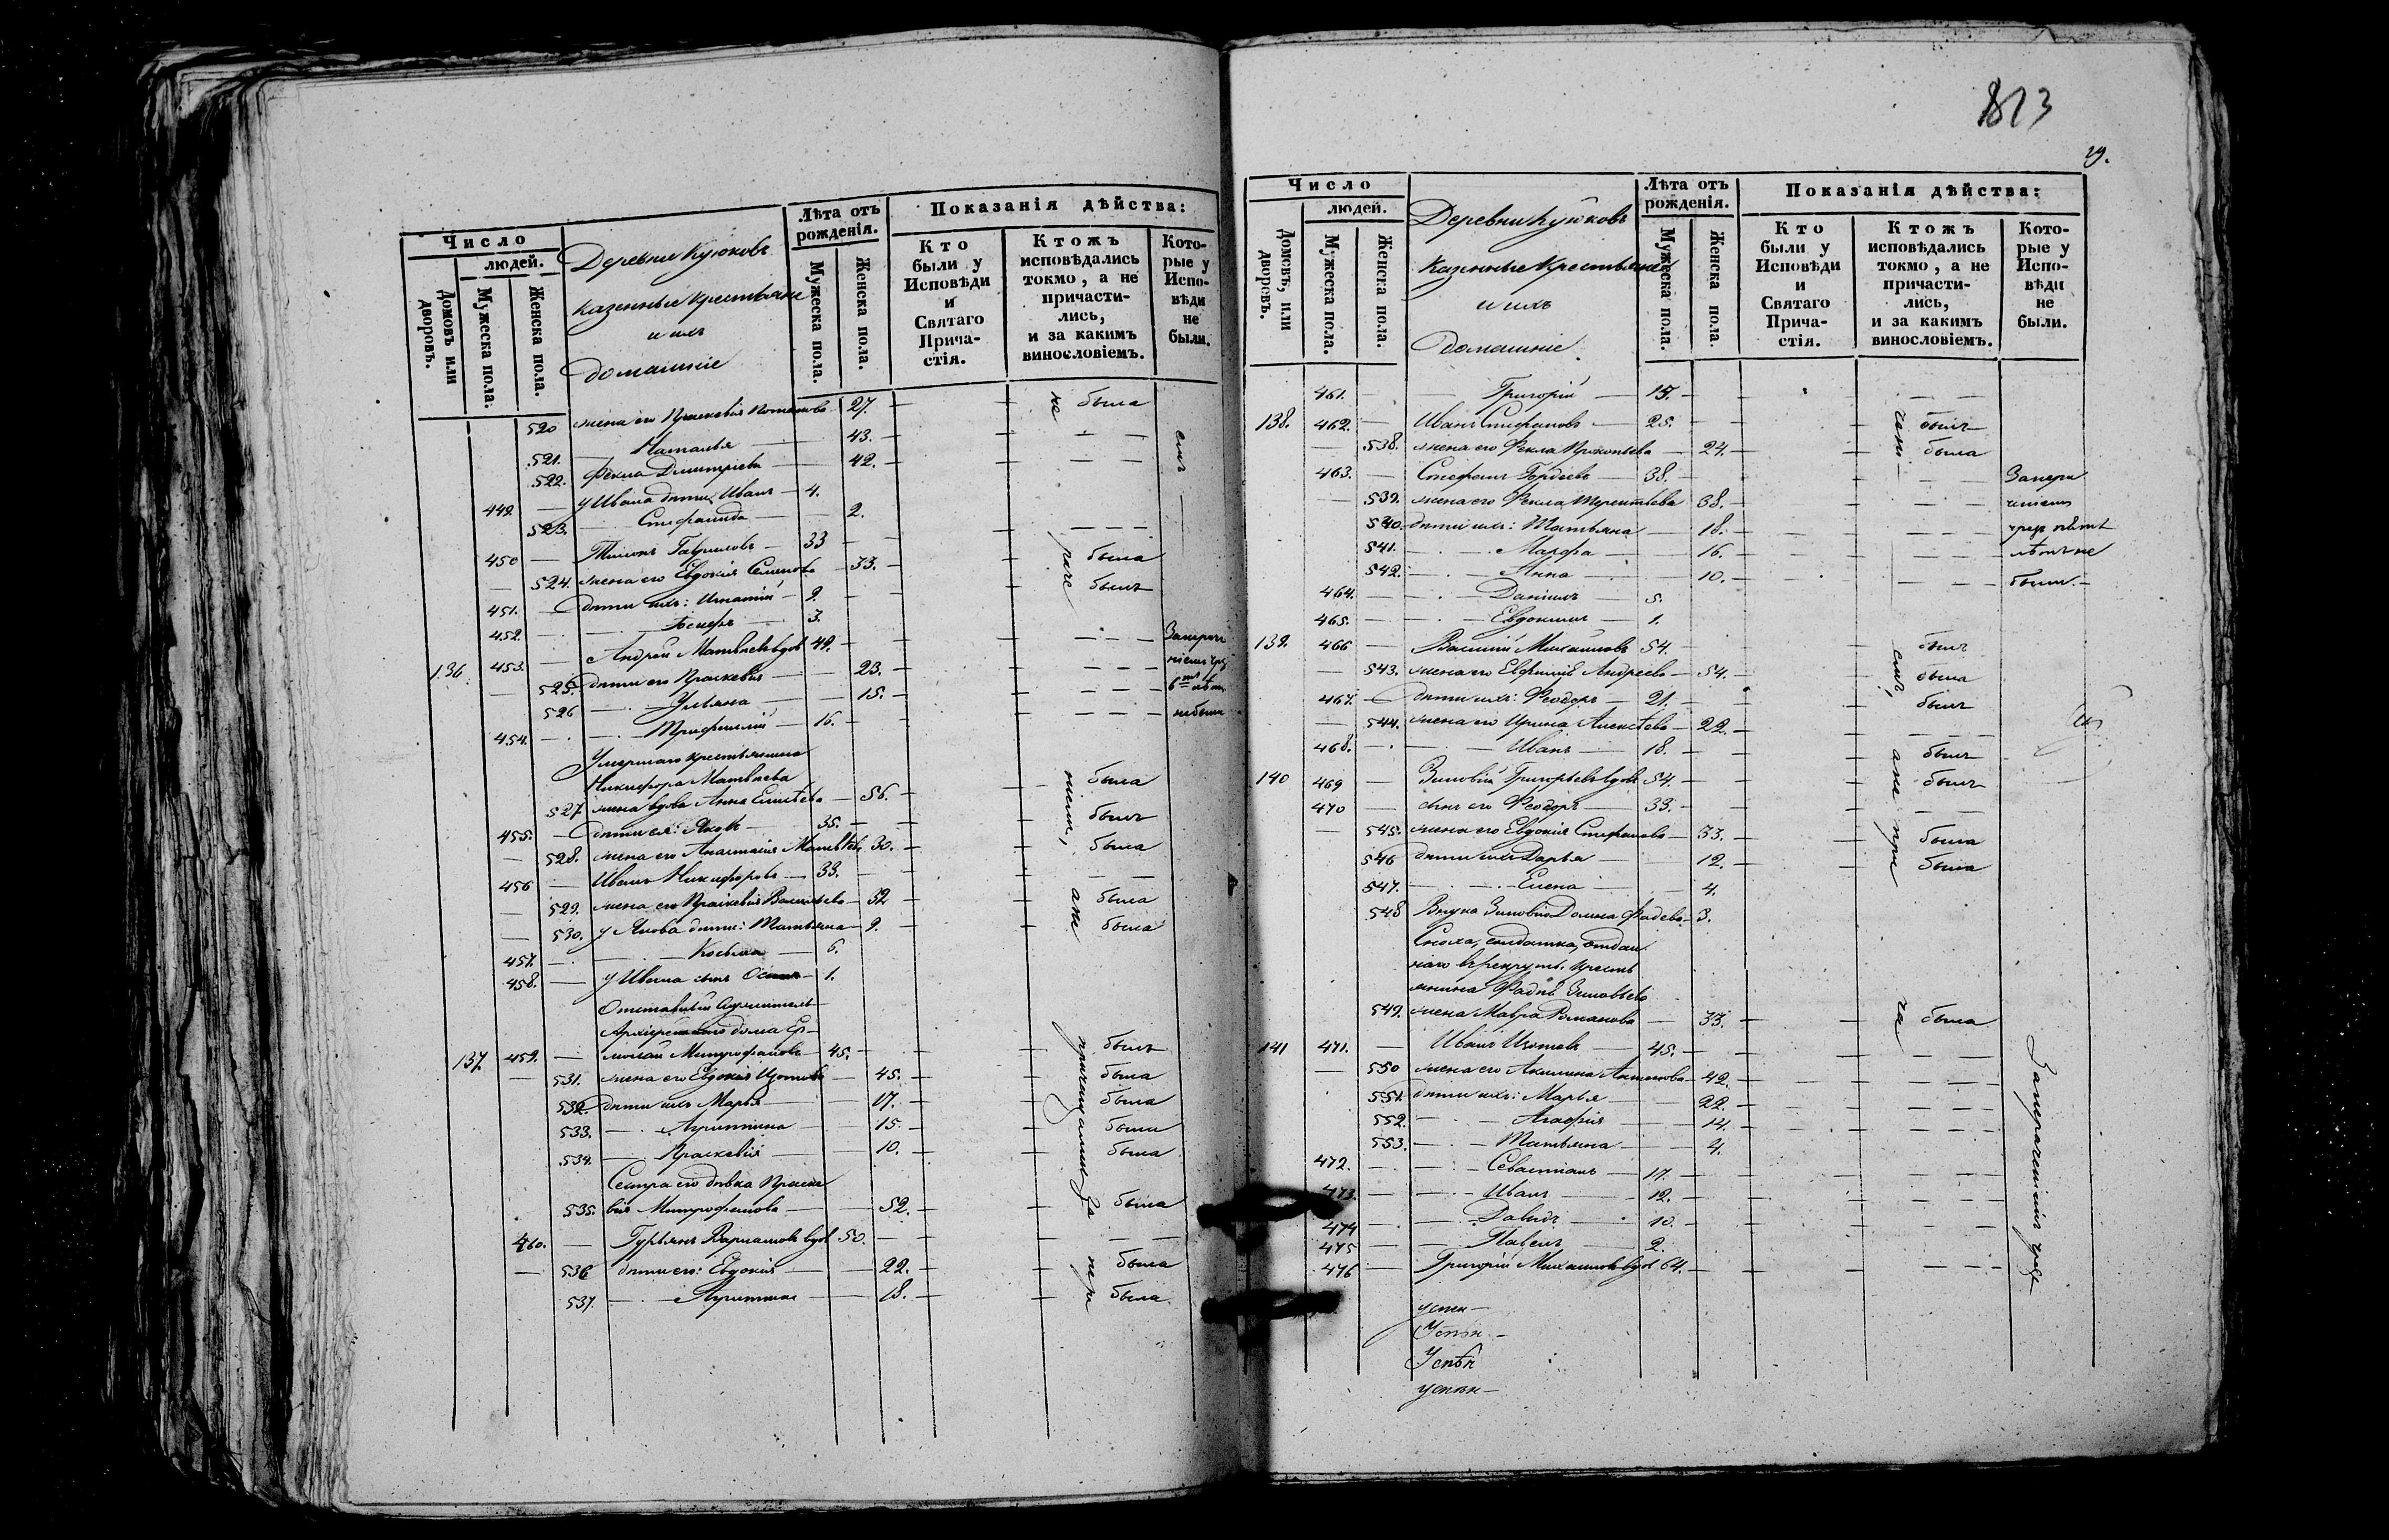 Число
людей.
Домовъ или дворовъ.
Мужеска пола.
Женска пола.
Деревни Куюковъ
казенные крестьяне
и ихъ
домашніе
Лѣта отъ рожденія.
Мужеска пола.
Женска пола.
Показанія дѣйства:
Кто были у Исповѣди и Святаго Прича-стія.
Ктожъ исповѣдались токмо, а не причасти-лись, и за какимъ винословіемъ.
Кото-рые у Испо-вѣди не были.
520 жена его Праскевія 27. не была
521. Наталья 43.
522. Фекла Дмитріева 42.
449. у Ивана дѣти: Иванъ 4.
523. Стефанида 2.
450 Гавриловъ 33
524. жена его Евдокія Семенова 33. была
451. дѣти ихъ: Игнатій 9. былъ
452. Іосифъ 3.
136. 453. Андрей Матвѣевъ вдов 49.
525. дѣти его Праскевія 23.
526 Ульяна 15.
454. Трифиллій 16.
Умершаго крестьянина
Никифора Матвѣева
527 жена вдова Анна 56. была
455. дѣти ея: Яковъ 35. былъ
528. жена его Анастасія Матвѣева 30. была
456 Иванъ Никифоровъ 33.
529. жена его Праскевія Васильева 32 была
530. у Якова дѣти: Татьяна 9. была
457. Косьма 6.
458. у Ивана сынъ 1.
Отставный служитель
дома Ер-
137. 459. молай Митрофановъ 45. былъ
531. жена его Евдокія Изотова 45. была
532. дѣти ихъ Марья 17. была
533. Агриппина 15. была
534. Праскевія 10. была
Сестра его дѣвка Праске
535. вія Митрофанова 52. была
460. Гурьянъ вдов 50.
536 дѣти его: Евдокія 22. была
537. Агриппина 18. была
813
29.
Число
людей.
Домовъ, или дворовъ.
Мужеска пола.
Женска пола.
Деревни Куюковъ
казенные крестьяне
и ихъ
домашніе
Лѣта отъ рожденія.
Мужеска пола.
Женска пола.
Показанія дѣйства:
Кто были у Исповѣди и Святаго Прича-стія.
Ктожъ исповѣдались токмо, а не причасти-лись, и за какимъ винословіемъ.
Кото-рые у Испо-вѣди не были.
461. Григорій 15.
138. 462. Иванъ Стефановъ 25. былъ
538. жена его Фекла Прокопьева 24. была
463. Стефанъ Гордѣевъ 38.
539. жена его Фекла Терентьева 38.
540. дѣти ихъ: Татьяна 18.
541. Марфа 16.
542. Анна 10.
464. Даніилъ 5.
465. Евдокимъ 1.
139. 466 Василій Михайловъ 54. былъ
543. жена его Евфимія Андреева 54. была
467. дѣти ихъ: Феодоръ 21. былъ
544. жена его Ирина Алексѣева 22.
468. Иванъ 18. былъ
140 469 Зиновій Григорьевъ вдов 54. былъ
470 сынъ его Феодоръ 33.
545. жена его Евдокія Стефанова 33. была
546 дѣти ихъ Дарья 12. была
547. Елена 4.
548 Внука Зиновія Домна Фадеева 3.
Сноха, солдатка, отдан
наго въ рекруты кресть
янина Фадѣя Зиновьева
549. жена Мавра Романова 33. была
141 471. Иванъ Изотовъ 45.
550 жена его Акилина Антонова 42.
551. дѣти ихъ: Марья 22.
552. Агафія 14.
553. Татьяна 4.
472. Севастіанъ 17.
473. Иванъ 12.
474 Давидъ 10.
475 Павелъ 2.
476 Григорій Михайловъ вдов 64.